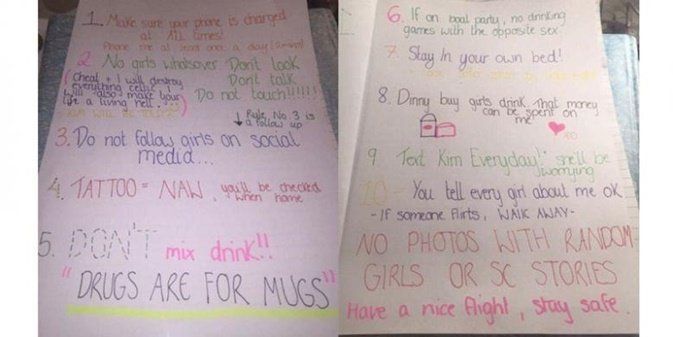 1. Make sure your phone is charged
at All times!
Phone me at least once a day
2 No girls whatsover Dont look
Dont talk
Do not touch!!!!!!
(Cheat + I will destroy
everything celtic I
will also make your
life a living hell
↓ Rule No. 3 is
a follow up
3. Do not follow girls on social
media...
4. TATTOO = NAW, you'll be checked
when home
5. DON'T mix drink!!
"DRUGS ARE FOR MUGS"
6. If on boat party, no drinking
games with the opposite sex
7. Stay In your own bed!
8. Dinny buy girls drink that money
can be spent on
me
9 Text Kim Everyday! she'll be
worrying
10 - You tell every girl about me OK
- If someone flirts, WALK AWAY -
NO PHOTOS WITH RANDOM
GIRLS OR SC STORIES
Have a nice flight, stay safe.